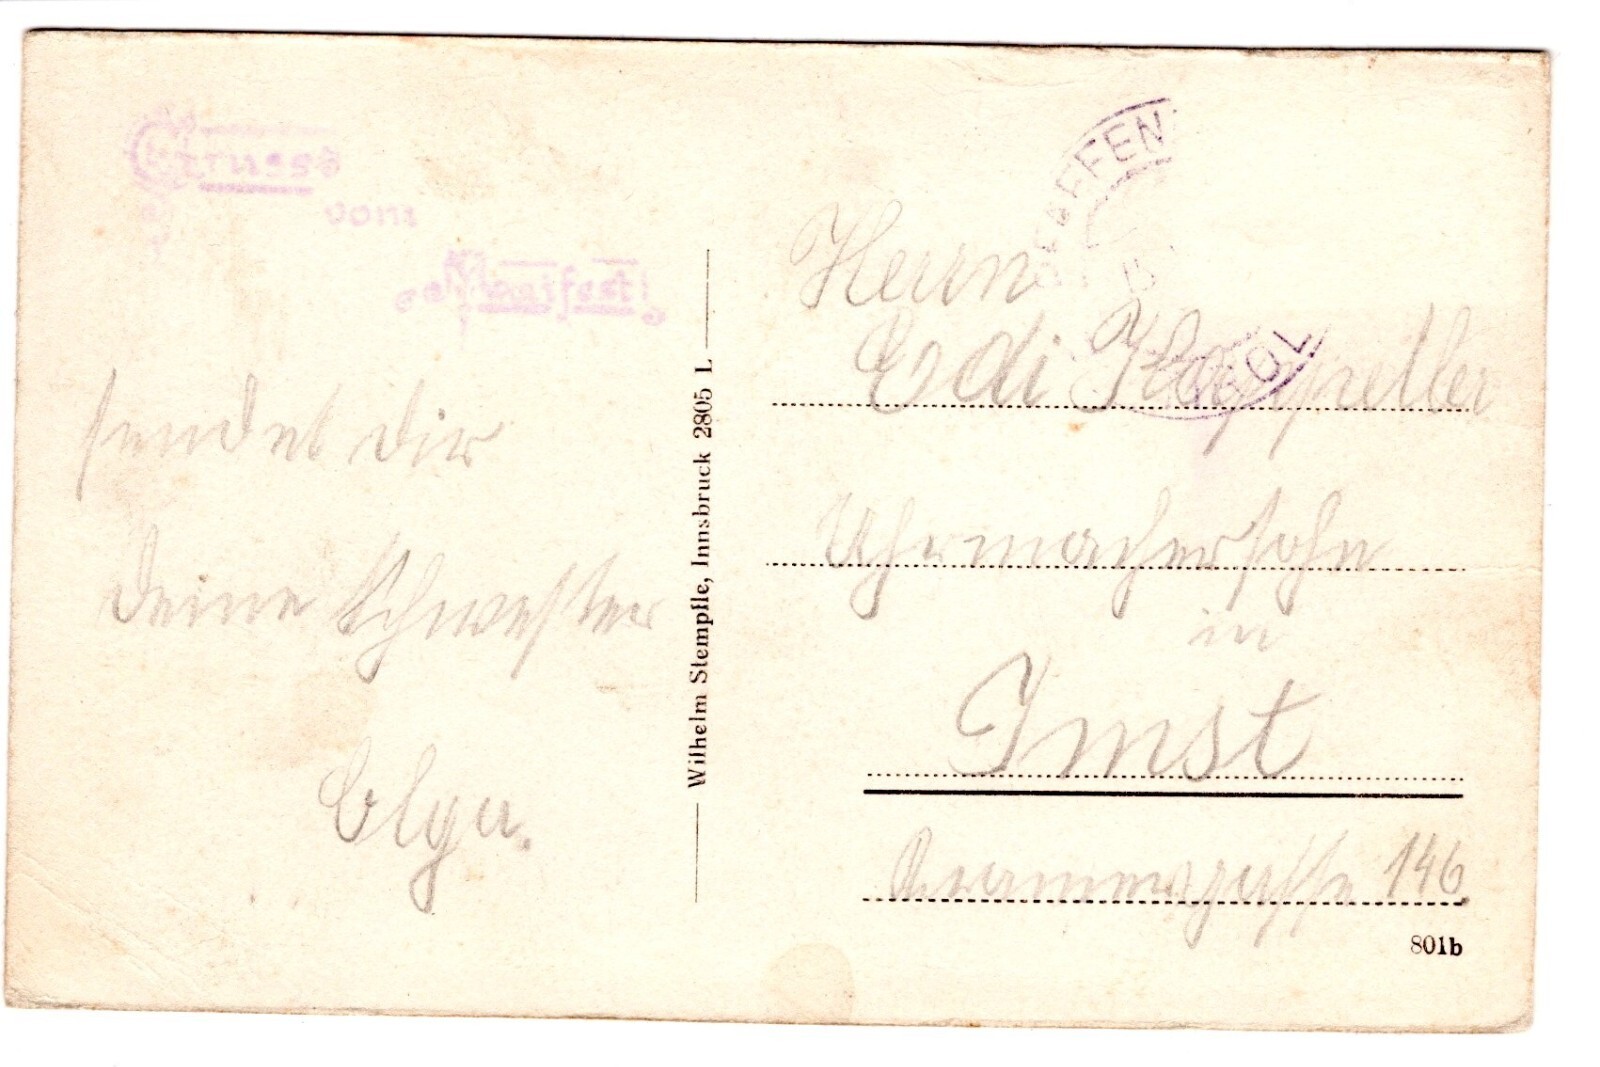 Gruss
vom
Maifest!
sendet dir
deine Schwester
Olga.
Wilhelm Stempfle, Innsbruck 2805 L
PFAFFEN
TIROL
Herrn
Edi Floppeller
Uhrmachersohn
in
Imst
Kramergasse 146
801b